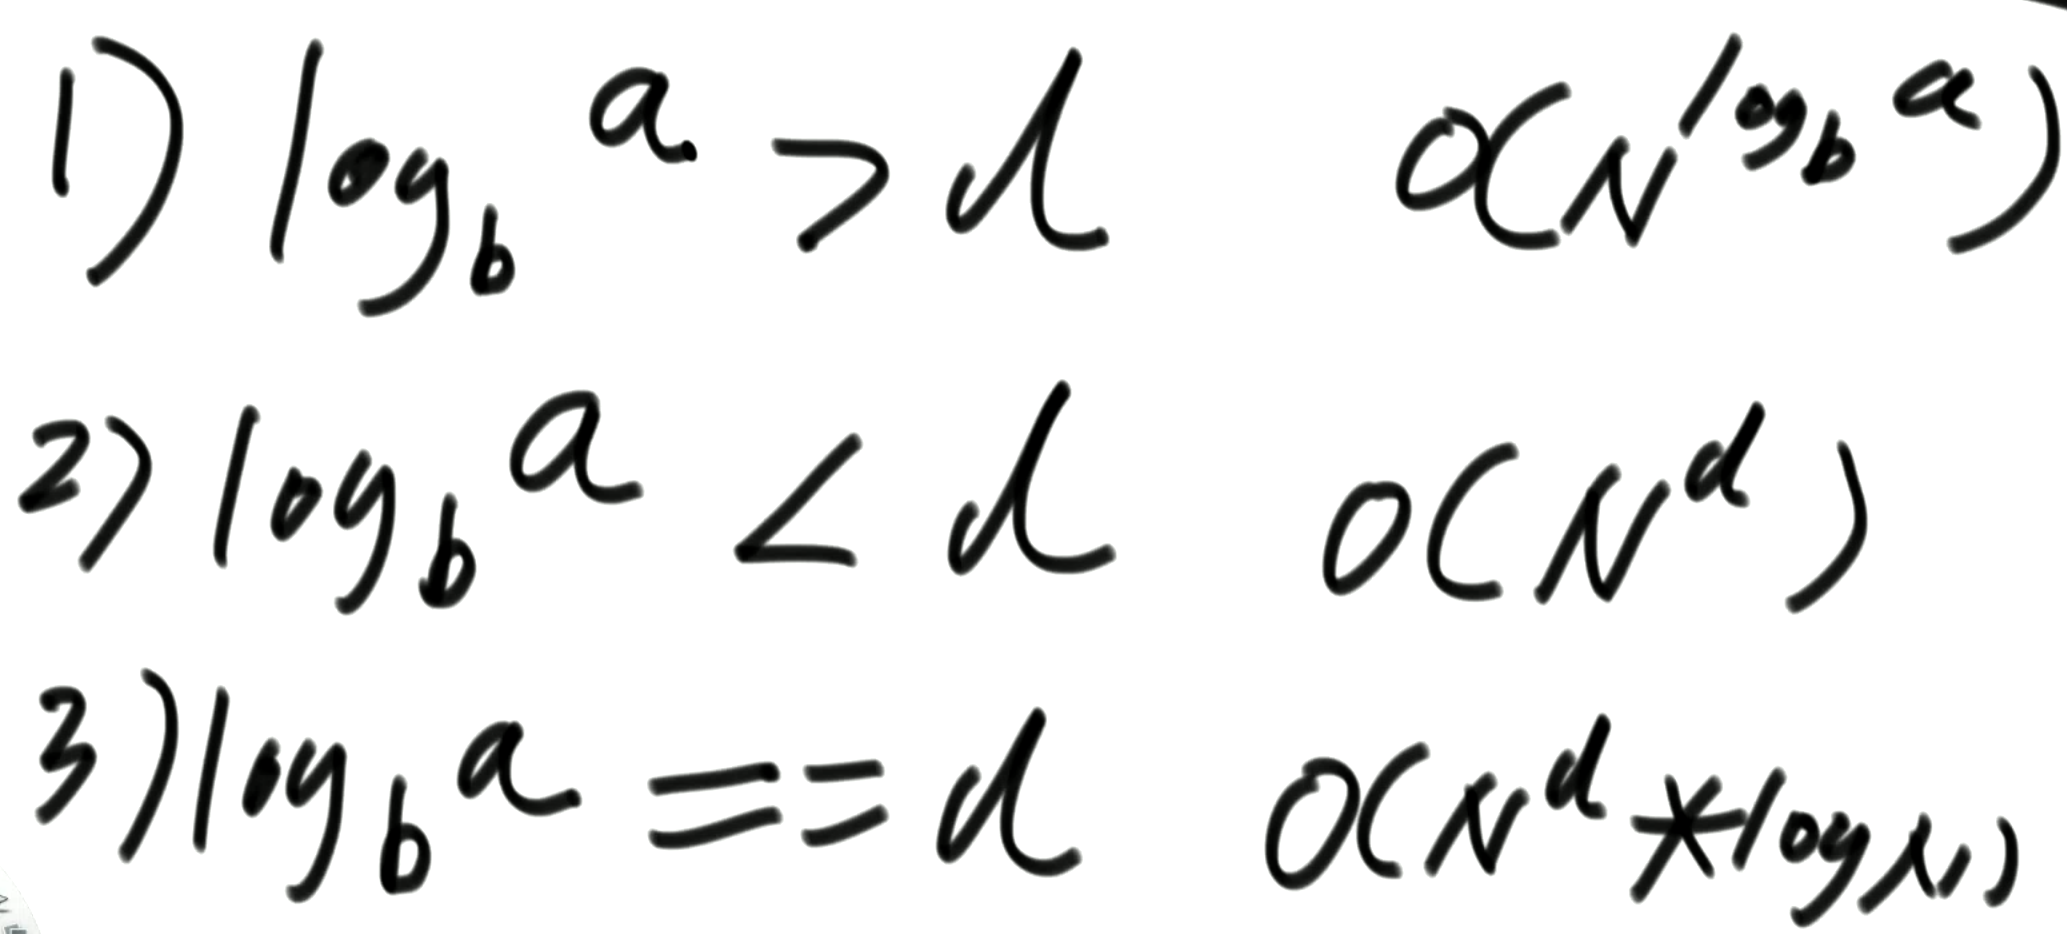 1) log_b^a > d O(N^{log_b^a})
2) log_b^a < d O(N^d)
3) log_b^a == d O(N^d * logN)